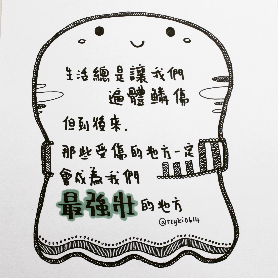 生活總是讓我們
遍體鱗傷
但到後來，
那些受傷的地方一定
會成為我們
最強壯的地方